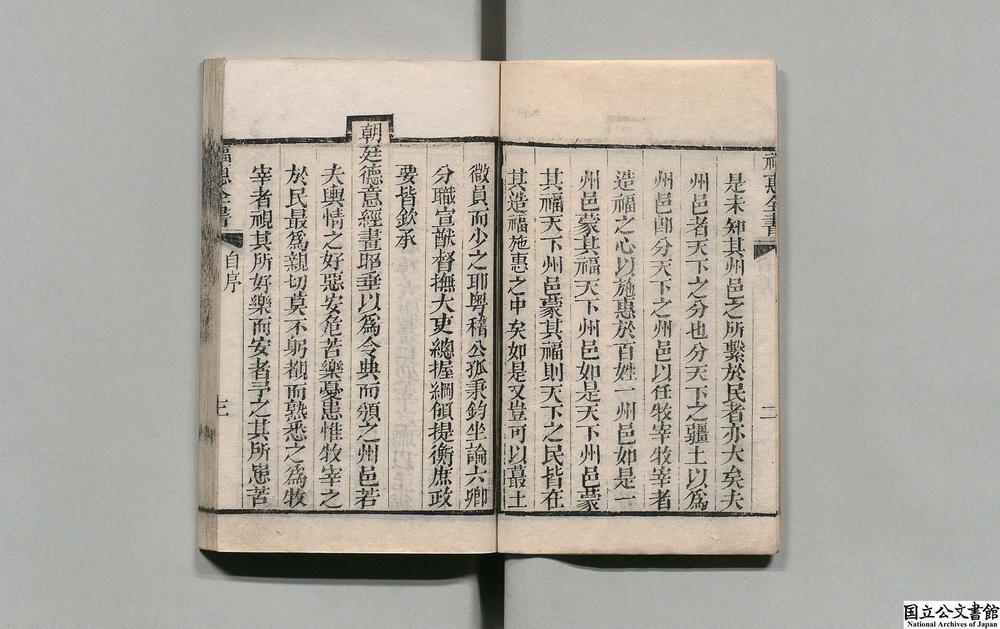 福惠全書
二
是未知其州邑之所繫於民者亦大矣夫
州邑者天下之分也分天下之疆土以爲
州邑卽分天下之州邑以任牧宰牧宰者
造福之心以施惠於百姓一州邑如是一
州邑蒙其福天下州邑如是天下州邑蒙
其福天下州邑蒙其福則天下之民皆在
其造福施惠之中矣如是又豈可以蕞土
微員而少之耶粤稽公孤秉鈞坐論六卿
分職宣猷督撫大吏總握綱領提衡庶政
要皆欽承
朝廷德意經畫昭垂以爲令典而頒之州邑若
夫輿情之好惡安危苦樂憂患惟牧宰之
於民最爲親切莫不躬覩而熟悉之爲牧
宰者視其所好樂而安者予之其所患苦
福惠全書
自序
三
国立公文書館
National Archives of Japan